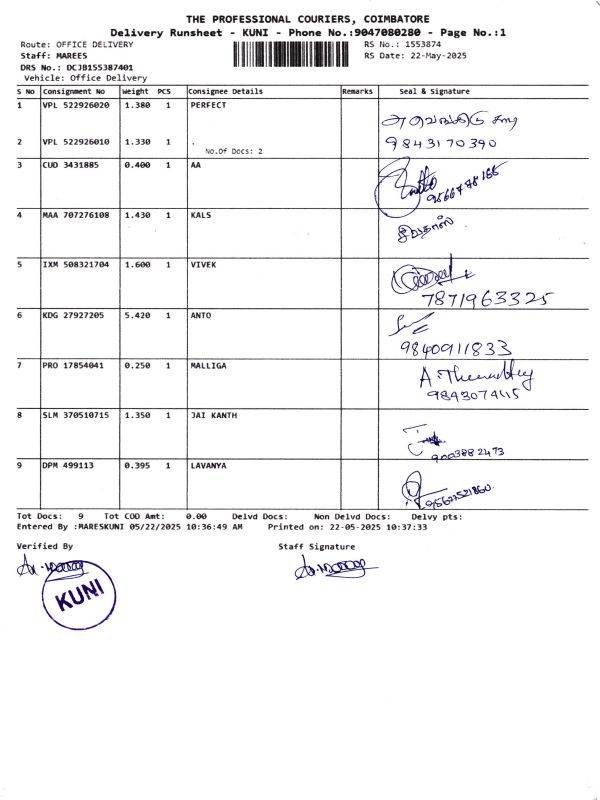 THE PROFESSIONAL COURIERS, COIMBATORE
Delivery Runsheet - KUNI - Phone No.:9047080280 - Page No.:1
Route: OFFICE DELIVERY
RS No.: 1553874
Staff: MAREES
RS Date: 22-May-2025
DRS No.: DCJB155387401
Vehicle: Office Delivery
S No Consignment No Weight PCS Consignee Details Remarks Seal & Signature
1 VPL 522926020 1.380 1 PERFECT
2 VPL 522926010 1.330 1 . 9843170390
No.Of Docs: 2
3 CUD 3431885 0.400 1 AA
9566778166
4 MAA 707276108 1.430 1 KALS
5 IXM 508321704 1.600 1 VIVEK
7871963325
6 KDG 27927205 5.420 1 ANTO
9840911833
7 PRO 17854041 0.250 1 MALLIGA
9843074115
8 SLM 370510715 1.350 1 JAI KANTH
9003882473
9 DPM 499113 0.395 1 LAVANYA
Tot Docs: 9 Tot COD Amt: 0.00 Delvd Docs: Non Delvd Docs: Delvy pts:
Entered By :MARESKUNI 05/22/2025 10:36:49 AM Printed on: 22-05-2025 10:37:33
Verified By Staff Signature
KUNI